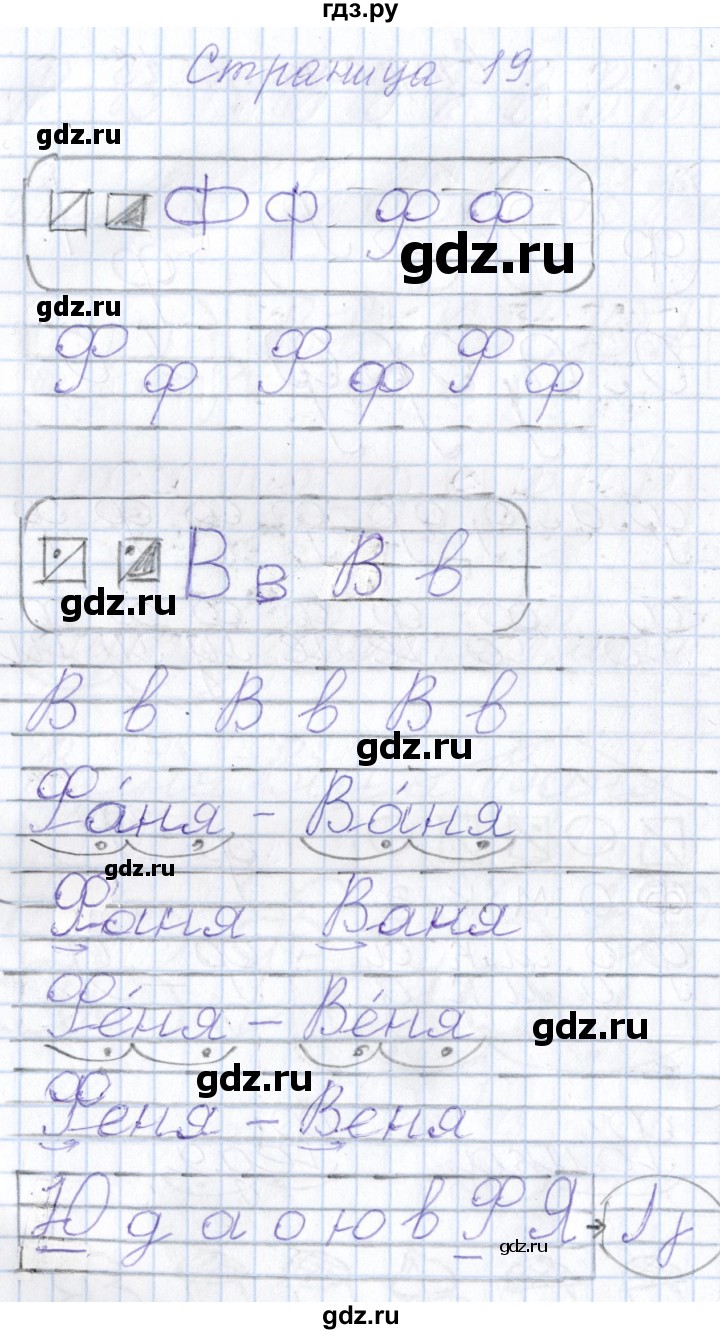 гдз.ру
Страница 19.
gdz.ru
Ф ф Ф ф
gdz.ru
gdz.ru
Ф ф Ф ф Ф ф
В в В в
gdz.ru
В в В в В в
gdz.ru
Фа́ня - Ва́ня
gdz.ru
Фаня Ваня
Фе́ня - Ве́ня
gdz.ru
gdz.ru
Феня - Веня
Ю д а о ю в Ф Я
gdz.ru
gdz.ru